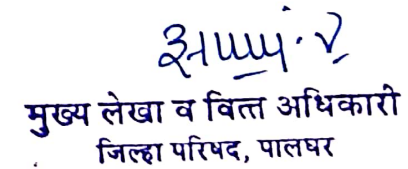 मुख्य लेखा व वित्त अधिकारी
जिल्हा परिषद, पालघर